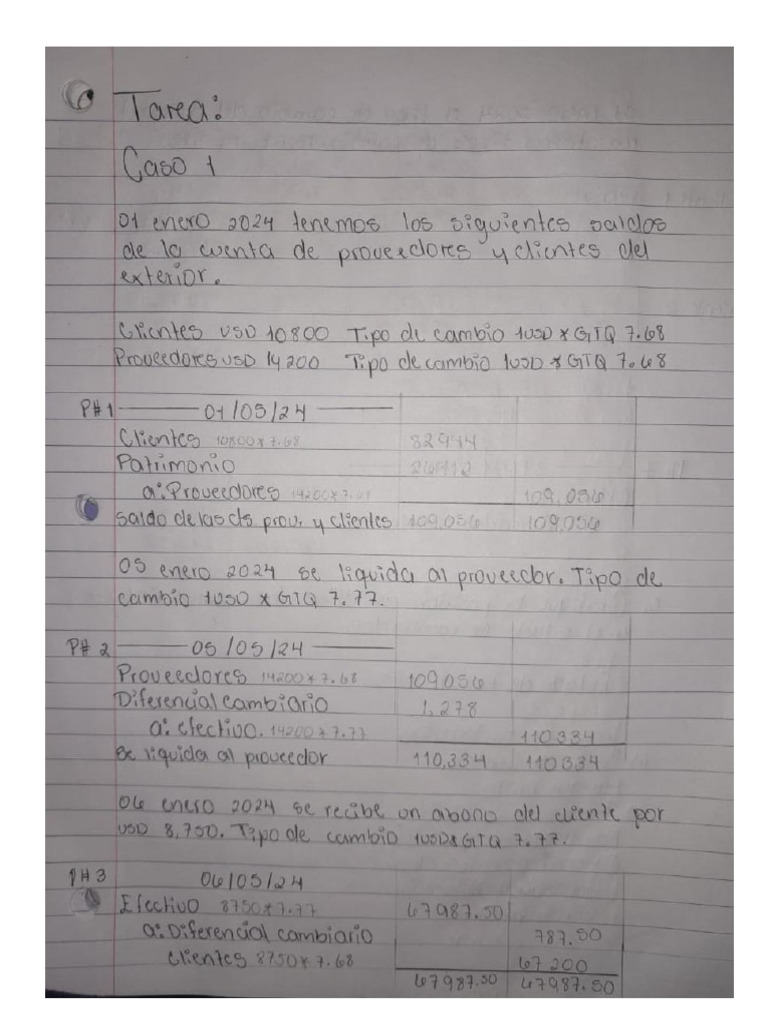 Tarea:
Caso 1
01 enero 2024 tenemos los siguientes saldos
de la cuenta de proveedores y clientes del
exterior.
Clientes USD 10800 Tipo de cambio 1USD * GTQ 7.68
Proveedores USD 14200 Tipo de cambio 1USD * GTQ 7.68
P#1 01/05/24
Clientes 10800*7.68 82944
Patrimonio 26112
a: Proveedores 14200*7.68 109,056
saldo de las cts prov. y clientes 109,056 109,056
05 enero 2024 se liquida al proveedor. Tipo de
cambio 1USD * GTQ 7.77.
P# 2 05/05/24
Proveedores 14200*7.68 109056
Diferencial cambiario 1,278
a: efectivo. 14200*7.77 110334
se liquida al proveedor 110,334 110334
06 enero 2024 se recibe un abono del cliente por
USD 8,750. Tipo de cambio 1USD * GTQ 7.77.
P#3 06/05/24
Efectivo 8750*7.77 67987.50
a: Diferencial cambiario 787.50
Clientes 8750*7.68 67200
67987.50 67987.50